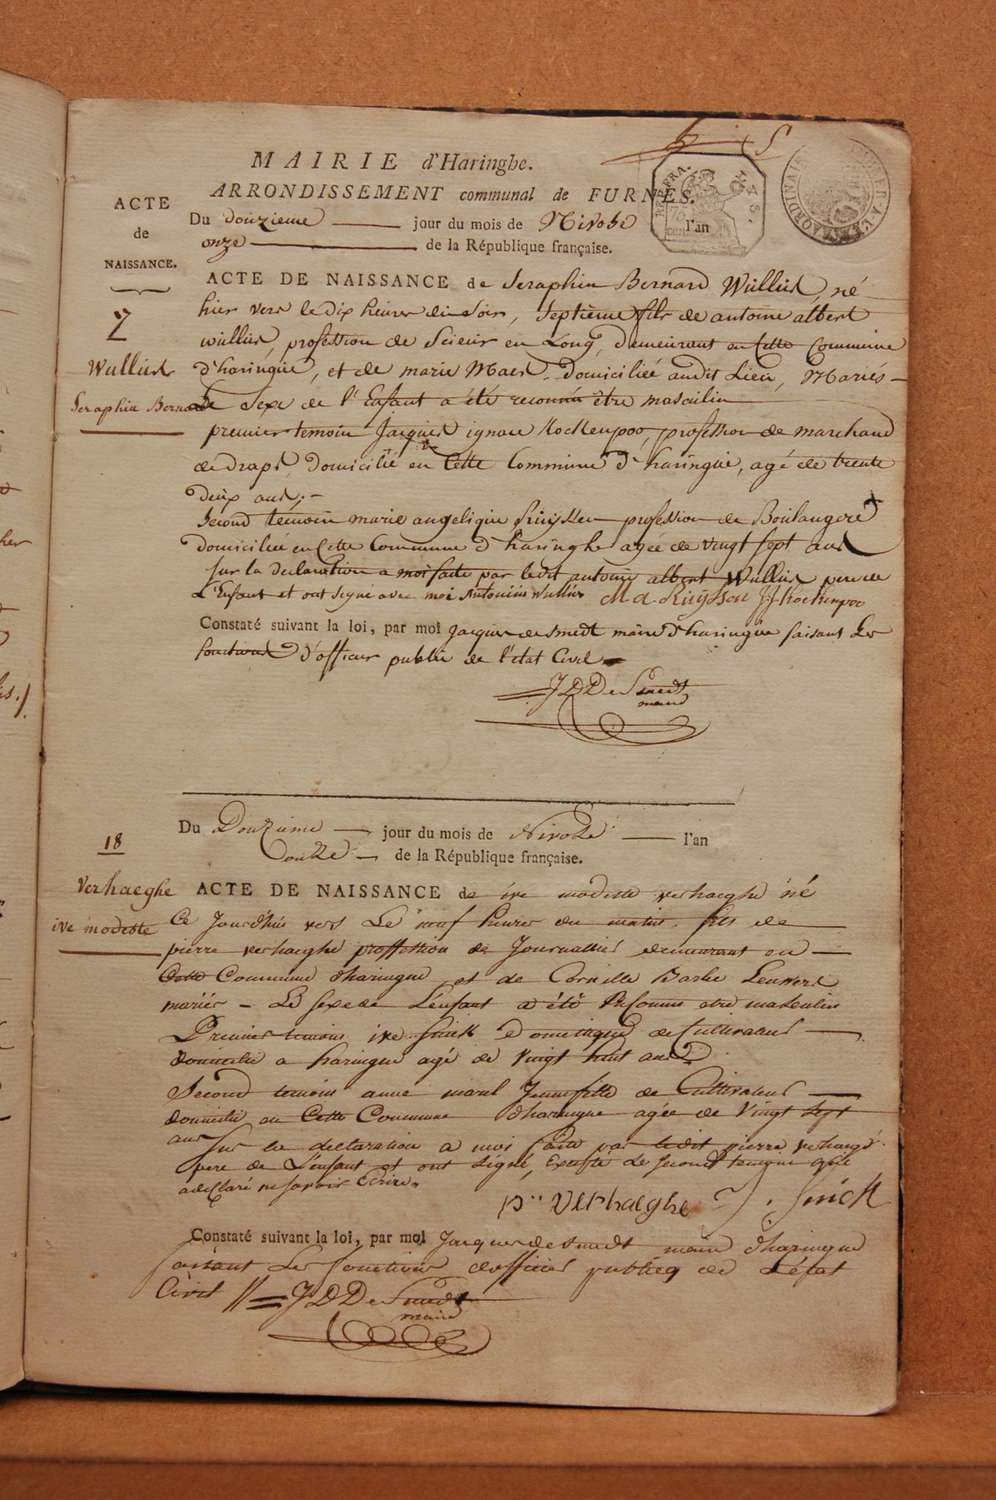 MAIRIE d'Haringhe.
ARRONDISSEMENT communal de FURNES.
ACTE
de
NAISSANCE.
Du douzieme jour du mois de Nivose l'an
onze de la République française.
ACTE DE NAISSANCE de Seraphin Bernard Wullus, né
hier vers le dix heures du Soir, Septième fils de antoine albert
wullus, profession de Scieur en Long, demeurant en Cette Commune
d'haringue, et de marie Maes domiciliée audit Lieu, Mariés
Le Sexe de l'Enfant a été reconnu être masculin
Wullus
Seraphin Bernard
premier temoin Jacques ignace Kockenpoo, profession de marchand
de draps domicilié en Cette Commune d'haringue, agé de trente
deux ans,
Second temoin marie angelique Ruyssen profession de Boulangere
domiciliée en Cette Commune d'haringhe agée de vingt sept ans
sur la declaration a moi faite par ledit antoine albert Wullus pere de
L'Enfant et ont signé avec moi Antonius Wullus M. a. Ruÿssen J J Kockenpoo
Constaté suivant la loi, par moi Jacques de smedt maire d'haringue faisant les
fonctions d'officier public de l'état Civil
J D De Smedt
maire
18
verhaeghe
ive modeste
Du Douzieme jour du mois de Nivose l'an
onze de la République française.
ACTE DE NAISSANCE de ive modeste verhaeghe né
Ce Jourdhui vers Le neuf heures du matin fils de
pierre verhaeghe proffession de Journallier demeurant en
Cette Commune dharingue et de Cornelle Barbe Leuwers
mariés Le Sexe de L'enfant a été reconnu etre masculin
Premier temoin ive Sinick Domestique de Cultivateur
domicilié a haringue agé de vingt huit ans
Second temoin anne marie Jeune fille de Cultivateur
domicilié en Cette Commune dharingue agée de Vingt sept
ans
Sur la declaration a moi faite par ledit pierre verhaeghe
pere de L'enfant et ont signé, Excepté Le second temoin qui
a declaré ne savoir Ecrire.
p. verhaeghe J. Sinick
Constaté suivant la loi, par moi Jacques de Smedt maire dharingue
faisant Les fonctions dofficier publicq de L'état
Civil J D De Smedt
maire